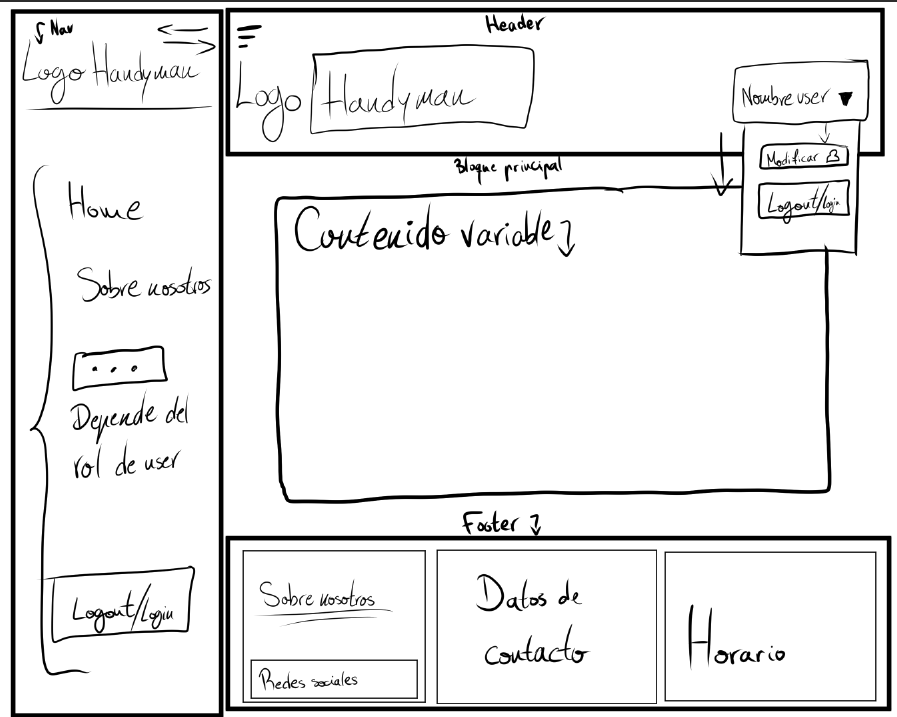 Nav
Logo Handyman
Home
Sobre nosotros
...
Depende del
rol de user
Logout/Login
Header
Logo Handyman
Nombre user
Modificar
Logout/Login
Bloque principal
Contenido variable
Footer
Sobre nosotros
Redes sociales
Datos de
contacto
Horario